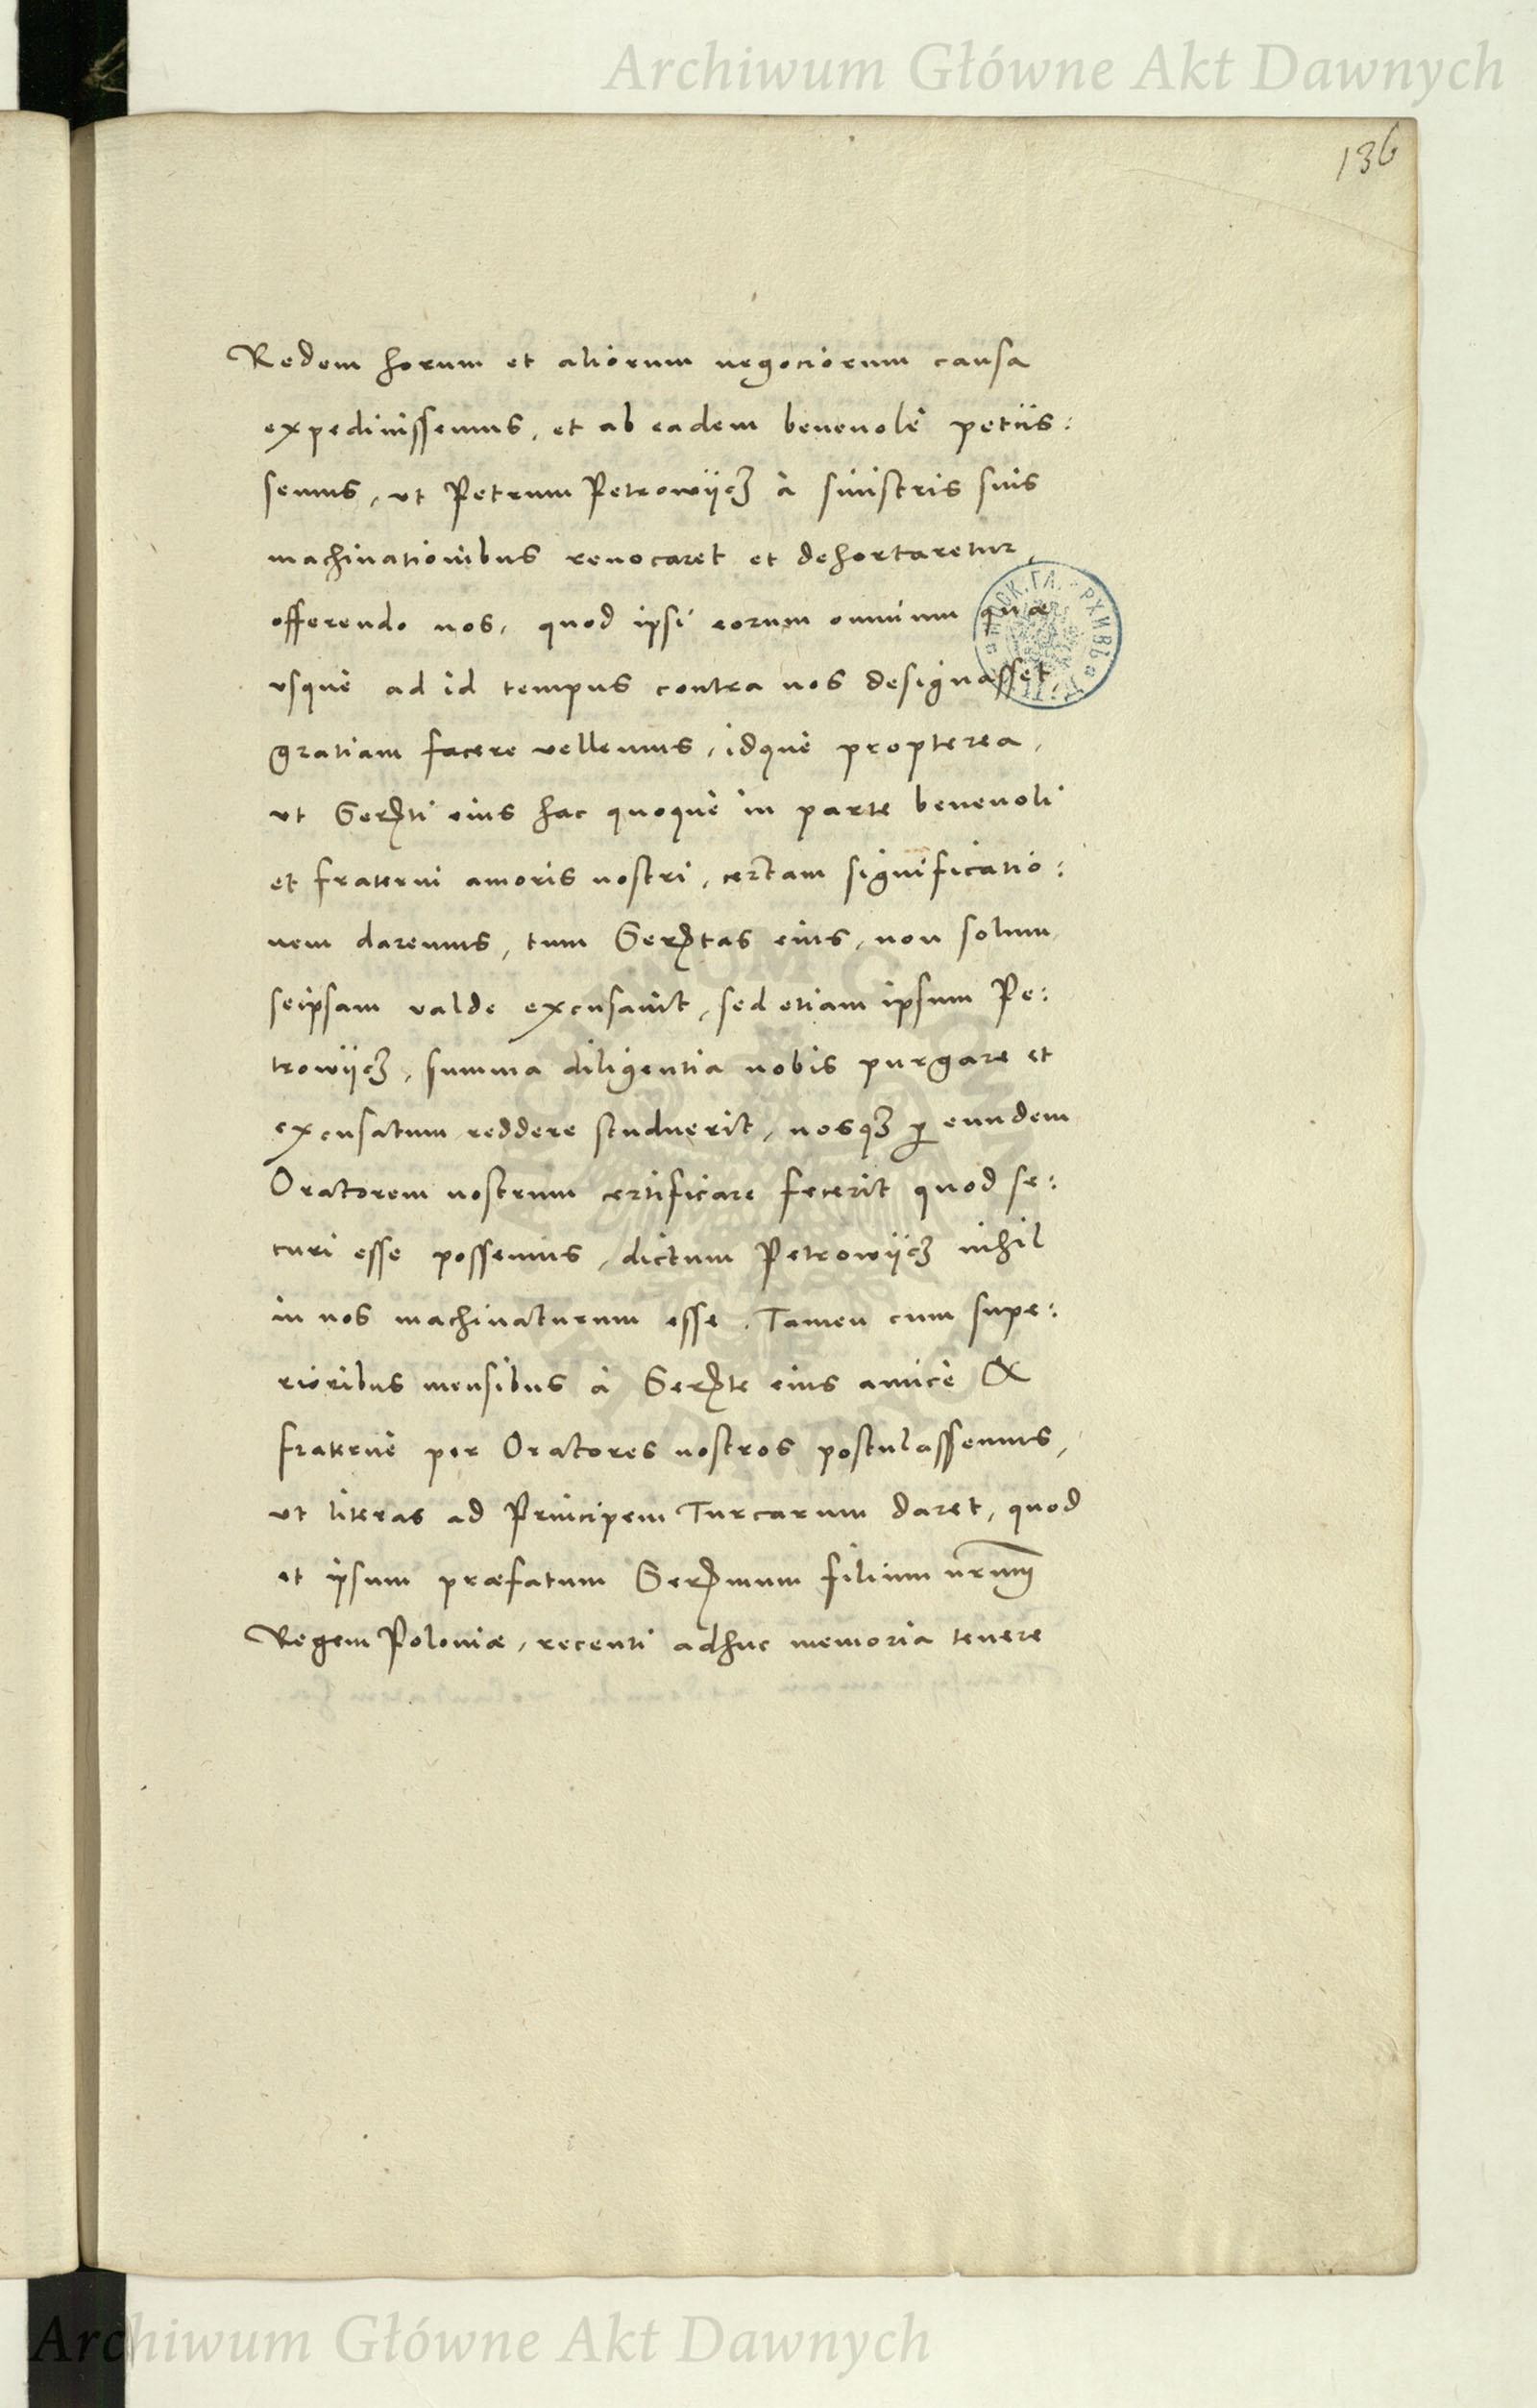 Archiwum Główne Akt Dawnych
136
Redem horum et aliorum negociorum causa
expedivissemus, et ab eadem benevolè petiis:
semus, ut Petrum Petrowijcz à sinistris suis
machinationibus revocaret et dehortaretur,
offerendo nos, quod ipsi eorum omnium quæ
usque ad id tempus contra nos designasset,
gratiam facere vellemus, idque propterea,
ut Serti eius hac quoque in parte benevoli
et fraterni amoris nostri, certam significatio:
nem daremus, tum Sertas eius, non solum
seipsam valde excusavit, sed etiam ipsum Pe:
trowijcz, summa diligentia nobis purgare et
excusatum reddere studuerit, nosqꝫ ꝑ eundem
Oratorem nostrum certificare fecerit quod se:
curi esse possemus, dictum Petrowijcz nihil
in nos machinaturum esse. Tamen cum supe:
rioribus mensibus à Serte eius amicè &
fraternè per Oratores nostros postulassemus,
ut literas ad Principem Turcarum daret, quod
et ipsum præfatum Sermum filium nrum
Regem Poloniæ, recenti adhuc memoria tenere
Archiwum Główne Akt Dawnych